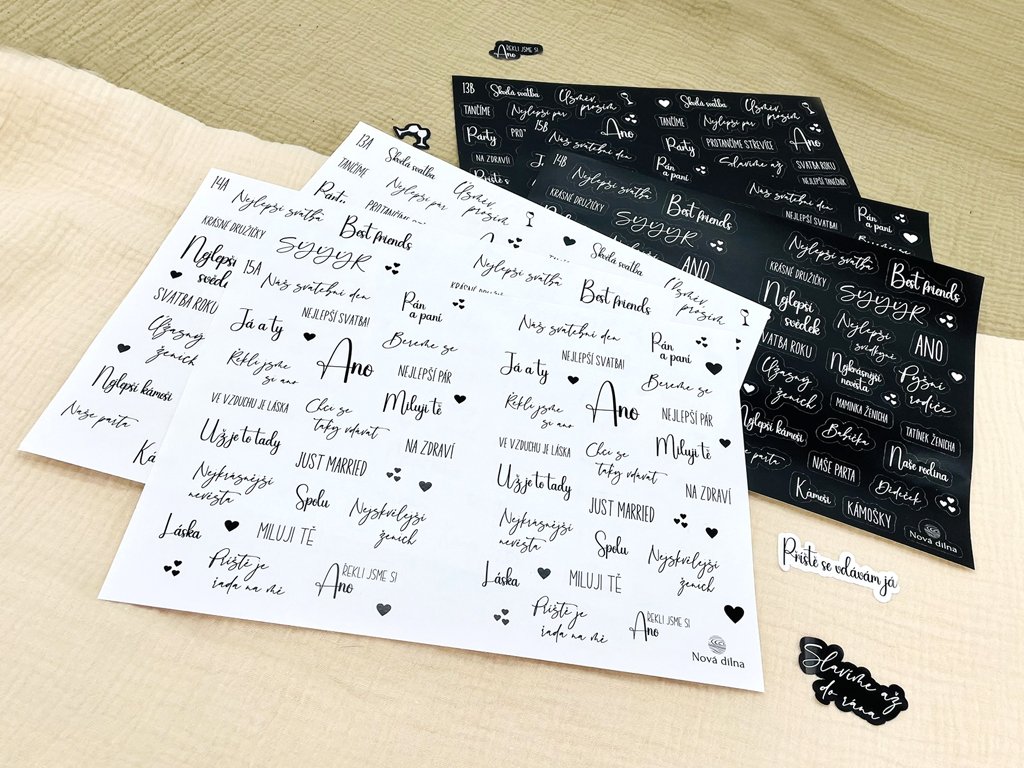 ŘEKLI JSME SI
Ano
13B
Skvělá svatba
Úsměv,
prosím
Skvělá svatba
Úsměv,
prosím
TANČÍME
Nejlepší pár
15B
TANČÍME
Nejlepší pár
Party
Ano
Party
PROTANČÍME STŘEVÍCE
Ano
Náš svatební den
NA ZDRAVÍ
14B
Pán
a paní
Slavíme až
SVATBA ROKU
NEJLEPŠÍ TANEČNÍK
Nejlepší svatba
Náš svatební den
NEJLEPŠÍ SVATBA!
Pán
a paní
Bereme se
KRÁSNÉ DRUŽIČKY
Best friends
SYYYR
ANO
Nejlepší svatba
KRÁSNÉ DRUŽIČKY
Best friends
SYYYR
Nejlepší
svědek
Nejlepší
svědkyně
ANO
SVATBA ROKU
Nejkrásnější
nevěsta
Pyšní
rodiče
Úžasný
ženich
MAMINKA ŽENICHA
TATÍNEK ŽENICHA
Nejlepší kámoši
Babička
Naše rodina
Naše parta
NAŠE PARTA
Dědeček
Kámoši
KÁMOŠKY
Nová dílna
13A
Skvělá svatba
Úsměv,
prosím
TANČÍME
Nejlepší pár
Party
Skvělá svatba
Úsměv,
prosím
14A
Nejlepší svatba
KRÁSNÉ DRUŽIČKY
Best friends
SYYYR
Nejlepší
svědek
Nejlepší svatba
KRÁSNÉ DRUŽIČKY
Best friends
SVATBA ROKU
Úžasný
ženich
Nejlepší kámoši
Naše parta
15A
Náš svatební den
Já a ty
NEJLEPŠÍ SVATBA!
Pán
a paní
Řekli jsme
si ano
Ano
Bereme se
NEJLEPŠÍ PÁR
VE VZDUCHU JE LÁSKA
Chci se
taky vdávat
Miluji tě
Už je to tady
JUST MARRIED
NA ZDRAVÍ
Nejkrásnější
nevěsta
Spolu
Nejskvělejší
ženich
Láska
MILUJI TĚ
Příště je
řada na mě
ŘEKLI JSME SI
Ano
Náš svatební den
Já a ty
NEJLEPŠÍ SVATBA!
Pán
a paní
Řekli jsme
si ano
Ano
Bereme se
NEJLEPŠÍ PÁR
VE VZDUCHU JE LÁSKA
Chci se
taky vdávat
Miluji tě
Už je to tady
JUST MARRIED
NA ZDRAVÍ
Nejkrásnější
nevěsta
Spolu
Nejskvělejší
ženich
Láska
MILUJI TĚ
Příště je
řada na mě
ŘEKLI JSME SI
Ano
Nová dílna
Příště se vdávám já
Slavíme až
do rána